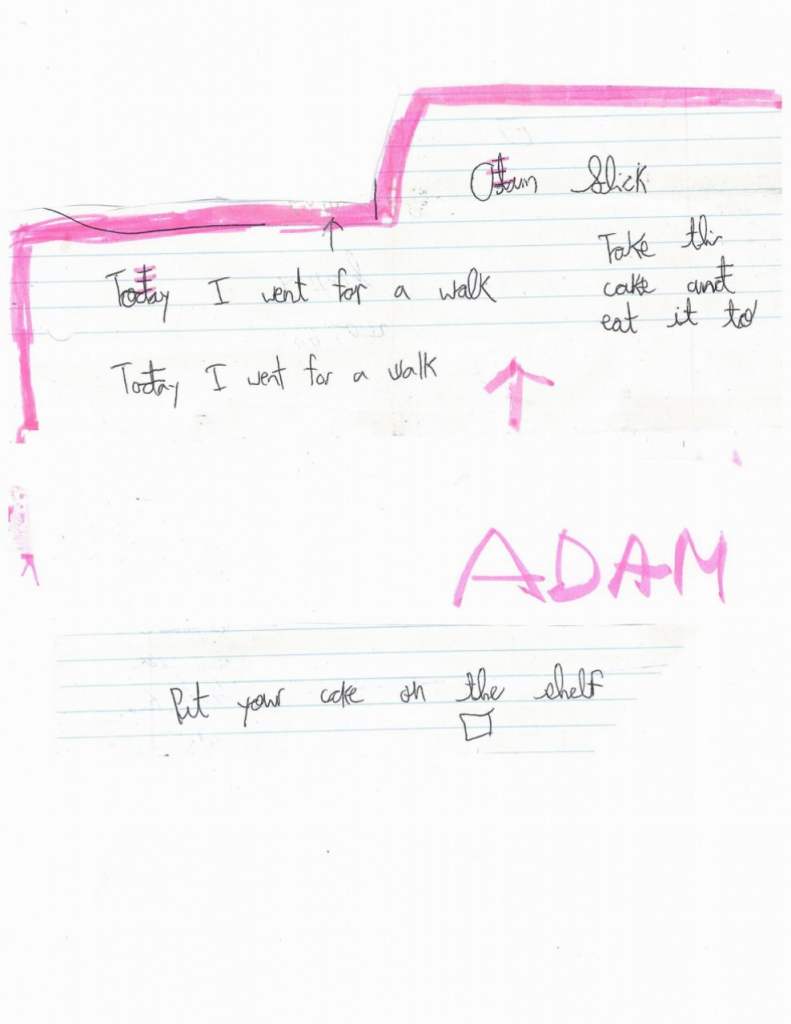 Slick
Take thi
cake and
eat it to
Today I went for a walk
Today I went for a walk
ADAM
Put your cake on the shelf